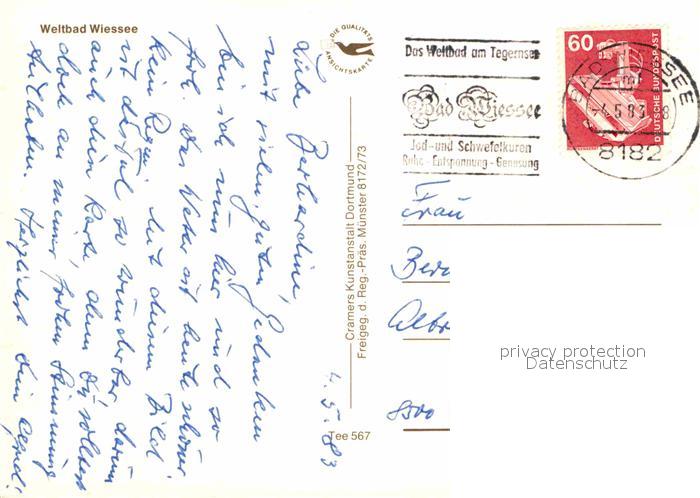 Weltbad Wiessee
DIE QUALITÄTS
ANSICHTSKARTE
Liebe
mit vielen guten Gedanken
bin ich nun hier und so
froh. das Wetter ist heute schöner
kein Regen. Mit diesem Bild
ist so wunderbar darum
auch diese Karte, denn Du solltest
doch an meiner frohen Stimmung
Herzlichst Dein
4. 5. 83
Cramers Kunstanstalt Dortmund
Freigeg. d. Reg.-Präs. Münster 8172/73
Tee 567
Das Weltbad am Tegernsee
Bad Wiessee
Jod- und Schwefelkuren
Ruhe - Entspannung - Genesung
60
DEUTSCHE BUNDESPOST
BAD WIESSEE
-4.5.83
8182
Frau
8500
privacy protection
Datenschutz